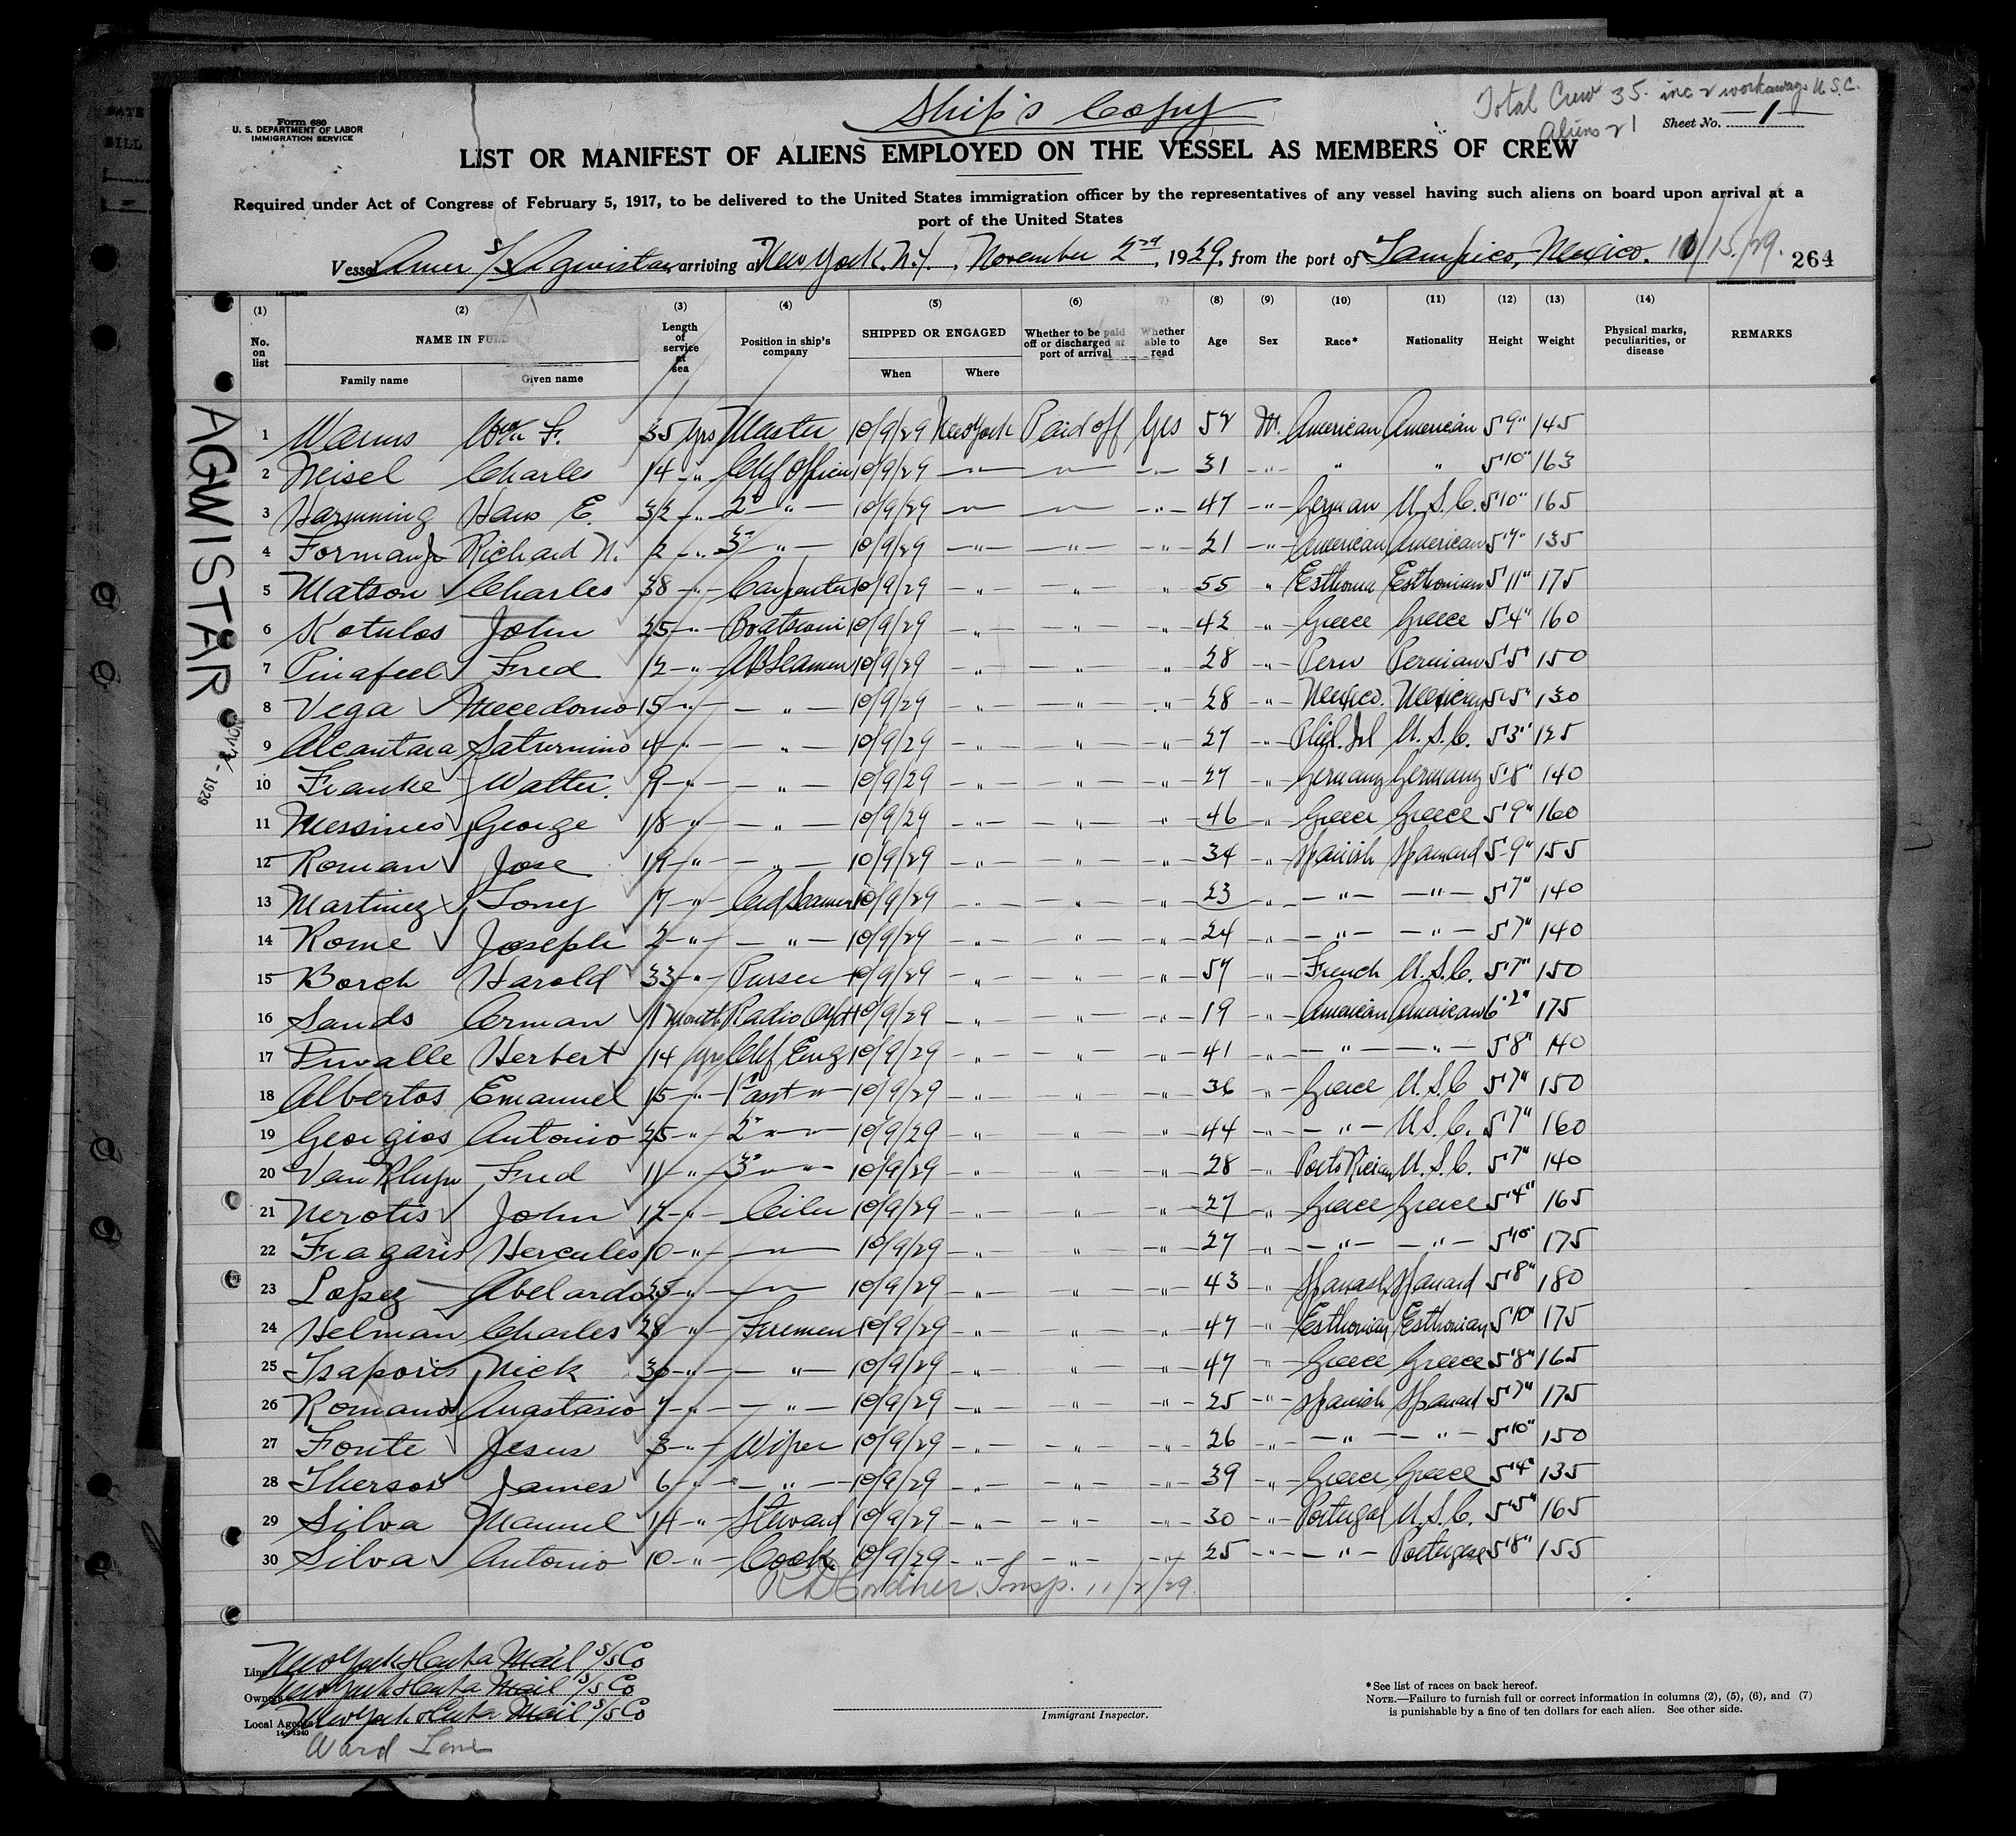 Ship's Copy
Total Crew 35. inc 2 workaways U.S.C.
Aliens 21
Form 680
U. S. DEPARTMENT OF LABOR
IMMIGRATION SERVICE
Sheet No. 1
LIST OR MANIFEST OF ALIENS EMPLOYED ON THE VESSEL AS MEMBERS OF CREW
Required under Act of Congress of February 5, 1917, to be delivered to the United States immigration officer by the representatives of any vessel having such aliens on board upon arrival at a
port of the United States
Vessel Amer S/S Agwistar, arriving at New York. N.Y., November 2nd, 1929, from the port of Tampico, Mexico. 10/15/29. 264
(1) (2) (3) (4) (5) (6) (7) (8) (9) (10) (11) (12) (13) (14)
No. on list NAME IN FULL Length of service at sea Position in ship's company SHIPPED OR ENGAGED Whether to be paid off or discharged at port of arrival Whether able to read Age Sex Race* Nationality Height Weight Physical marks, peculiarities, or disease REMARKS
Family name Given name When Where
AGWISTAR
NOV 2 - 1929
1 Warms Wm F. 35 yrs Master 10/9/29 New York Paid off Yes 52 M. American American 5'9" 145
2 Meisel Charles 14 " Chf Officer 10/9/29 " " " 31 " " " 5'10" 163
3 Harmning Hans E. 32 " 2nd " 10/9/29 " " " 47 " German U.S.C. 5'10" 165
4 Forman Jr Richard N. 2 " 3rd " 10/9/29 " " " 21 " American American 5'7" 135
5 Matson Charles 38 " Carpenter 10/9/29 " " " 55 " Esthonia Esthonian 5'11" 175
6 Kotulos John 25 " Boatswain 10/9/29 " " " 42 " Greece Greece 5'4" 160
7 Pinafeel Fred 12 " AB Seamen 10/9/29 " " " 28 " Peru Peruian 5'5" 150
8 Vega Mecedonio 15 " " 10/9/29 " " " 28 " Mexico. Mexican 5'5" 130
9 Alcantara Saturnino 4 " " 10/9/29 " " " 27 " Phil. Isl U.S.C. 5'3" 125
10 Franke Walter. 9 " " 10/9/29 " " " 27 " Germany Germany 5'8" 140
11 Messines George 18 " " 10/9/29 " " " 46 " Greece Greece 5'9" 160
12 Roman Jose 19 " " 10/9/29 " " " 34 " Spanish Spaniard 5'9" 155
13 Martinez Tony 7 " Ord Seamen 10/9/29 " " " 23 " " " 5'7" 140
14 Rome Joseph 2 " " 10/9/29 " " " 24 " " " 5'7" 140
15 Borch Harold 33 " Purser 10/9/29 " " " 57 " French U.S.C. 5'7" 150
16 Sands Orman 1 Month Radio Opt 10/9/29 " " " 19 " American American 6'2" 175
17 Duvalle Herbert 14 yrs Chf Eng 10/9/29 " " " 41 " " " 5'8" 140
18 Albertos Emanuel 15 " 1st asst " 10/9/29 " " " 36 " Greece U.S.C 5'7" 150
19 Georgios Antonio 25 " 2nd " " 10/9/29 " " " 44 " " U.S.C. 5'7" 160
20 Van Rhyn Fred 11 " 3rd " " 10/9/29 " " " 28 " Porto Rican U.S.C. 5'7" 140
21 Nerotis John 12 " Oiler 10/9/29 " " " 27 " Greece Greece 5'4" 165
22 Fragaris Hercules 10 " " 10/9/29 " " " 27 " " " 5'10" 175
23 Lopez Abelardo 25 " " 10/9/29 " " " 43 " Spanash Spaniard 5'8" 180
24 Helman Charles 28 " Firemen 10/9/29 " " " 47 " Esthonian Esthonian 5'10" 175
25 Tsaporis Nick 30 " " 10/9/29 " " " 47 " Greece Greece 5'8" 165
26 Romano Anastasio 7 " " 10/9/29 " " " 25 " Spanish Spaniard 5'7" 175
27 Fonte Jesus 3 " Wiper 10/9/29 " " " 26 " " " 5'10" 150
28 Thersos James 6 " " 10/9/29 " " " 39 " Greece Greece 5'4" 135
29 Silva Manuel 14 " Steward 10/9/29 " " " 30 " Portugal U.S.C. 5'5" 165
30 Silva Antonio 10 " Cook 10/9/29 " " " 25 " " Portugese 5'8" 155
R D Gardner, Insp. 11/2/29.
Line New York & Cuba Mail S/S Co
Owners New York & Cuba Mail S/S Co
Local Agents New York & Cuba Mail S/S Co
14—1240
Ward Line
Immigrant Inspector.
*See list of races on back hereof.
NOTE.—Failure to furnish full or correct information in columns (2), (5), (6), and (7)
is punishable by a fine of ten dollars for each alien. See other side.